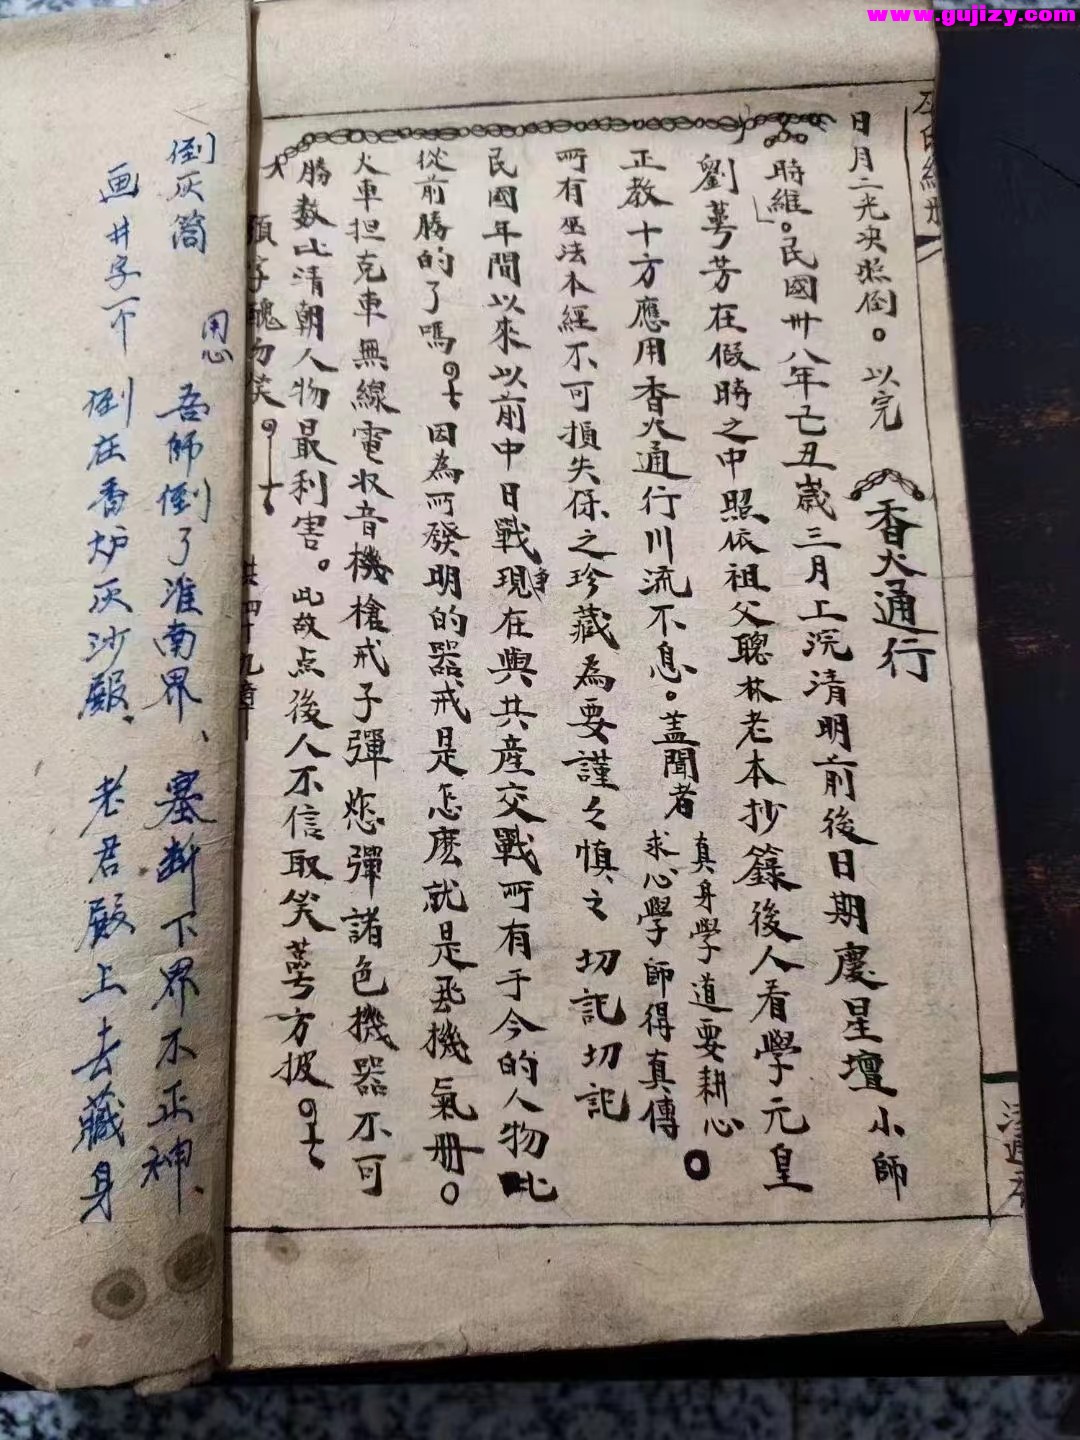 www.gujizy.com
日月二光决照倒。以完
香火通行
時維。民國卅八年己丑歲三月上浣清明前後日期慶星壇小師
劉萼芳在假時之中照依祖父聰林老本抄籙後人看學元皇
正教十方應用香火通行川流不息。盖聞者
真身學道要耕心
求心學師得真傳。
所有巫法本經不可損失保之珍藏為要謹之慎之切記切記
民國年間以來以前中日戰爭現在與共産交戰所有于今的人物比
從前勝的了嗎。因為所發明的器戒是怎麽就是飛機氣册。
火車担克車無線電收音機槍戒子彈炸彈諸色機器不可
勝数比清朝人物最利害。此故点後人不信取笑萼方披。
字醜勿笑。
共四十九章
倒灰筒
用心
吾師倒了淮南界、塞断下界不正神、
画井字一个
倒在香炉灰沙殿、老君殿上去藏身